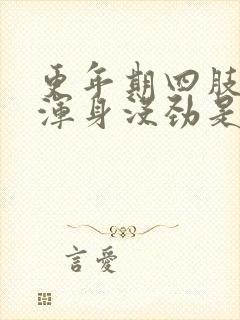 更年期四肢
渾身没劲是
言愛